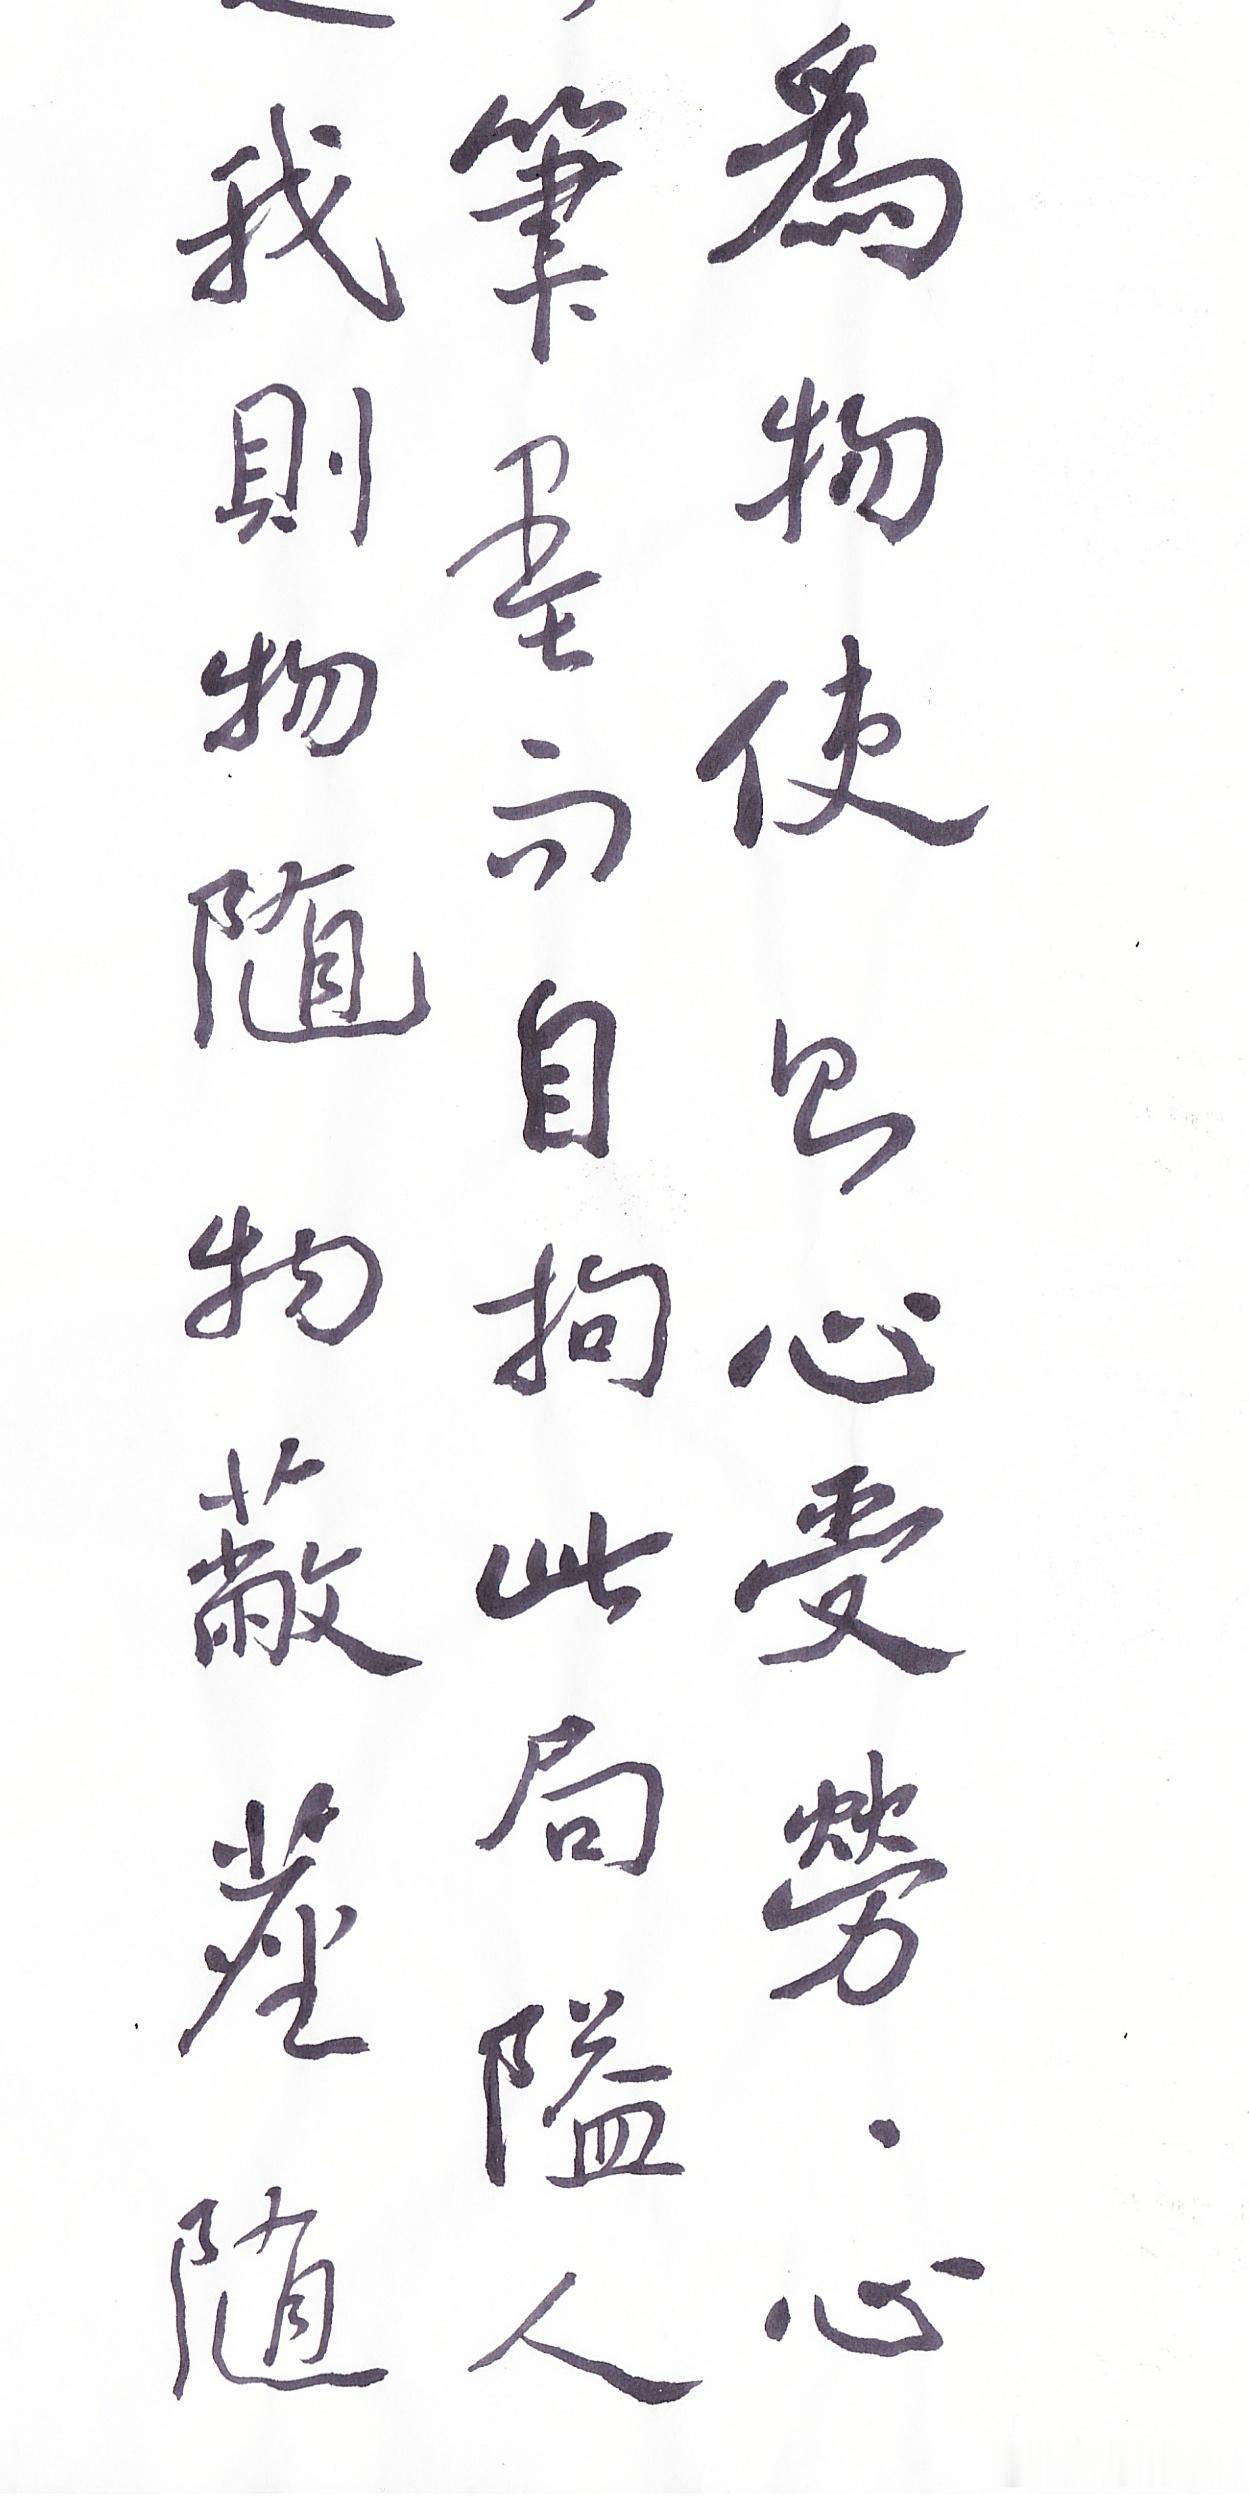 為物使則心受勞、心
筆墨而自拘此局隘人
我則物随物蔽塵随